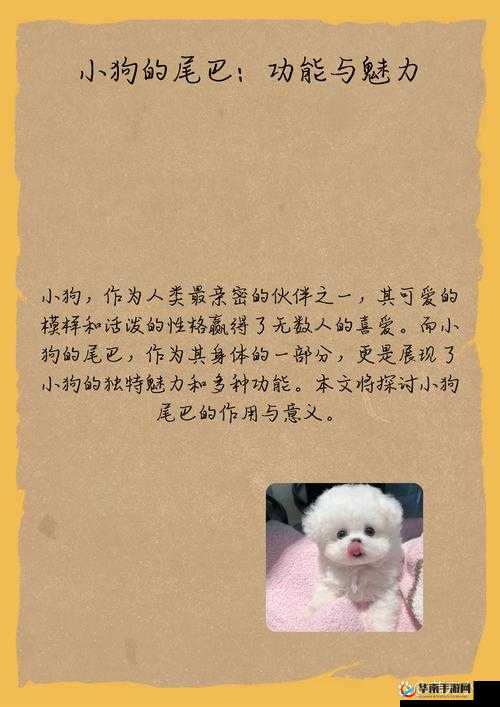 小狗的尾巴：功能与魅力
小狗，作为人类最亲密的伙伴之一，其可爱的
模样和活泼的性格赢得了无数人的喜爱。而小
狗的尾巴，作为其身体的一部分，更是展现了
小狗的独特魅力和多种功能。本文将探讨小狗
尾巴的作用与意义。
华南手游网